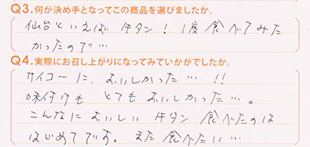 Q3.何が決め手となってこの商品を選びましたか。
仙台といえば牛タン！1度食べてみた
かったので…
Q4.実際にお召し上がりになってみていかがでしたか。
サイコーに、おいしかった…!!
味付けも とてもおいしかった…。
こんなにおいしい 牛タン 食べたのは
はじめてです。また食べたい…